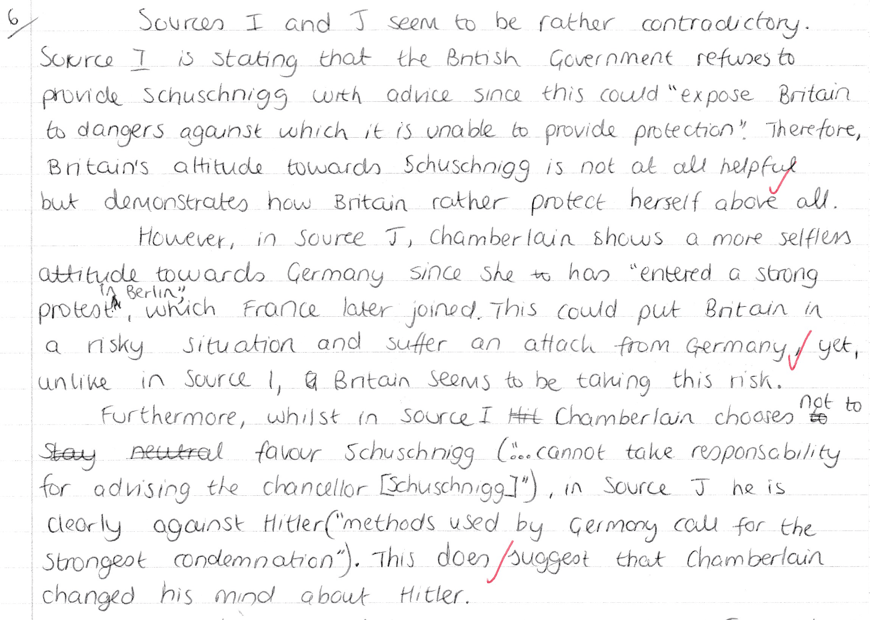 6
Sources I and J seem to be rather contradictory.
Source I is stating that the British Government refuses to
provide Schuschnigg with advice since this could "expose Britain
to dangers against which it is unable to provide protection". Therefore,
Britain's attitude towards Schuschnigg is not at all helpful
but demonstrates how Britain rather protect herself above all.
However, in Source J, Chamberlain shows a more selfless
attitude towards Germany since she to has "entered a strong
protest in Berlin", which France later joined. This could put Britain in
a risky situation and suffer an attack from Germany, yet,
unlike in Source I, Britain seems to be taking this risk.
Furthermore, whilst in Source I Hit Chamberlain chooses not to
stay neutral favour Schuschnigg ("...cannot take responsability
for advising the chancellor [Schuschnigg]"), in Source J he is
clearly against Hitler ("methods used by Germany call for the
strongest condemnation"). This does suggest that Chamberlain
changed his mind about Hitler.